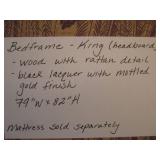 Bedframe - King (headboard)
- wood with rattan detail
- black lacquer with mottled
gold finish
79"W x 82"H
Mattress sold separately